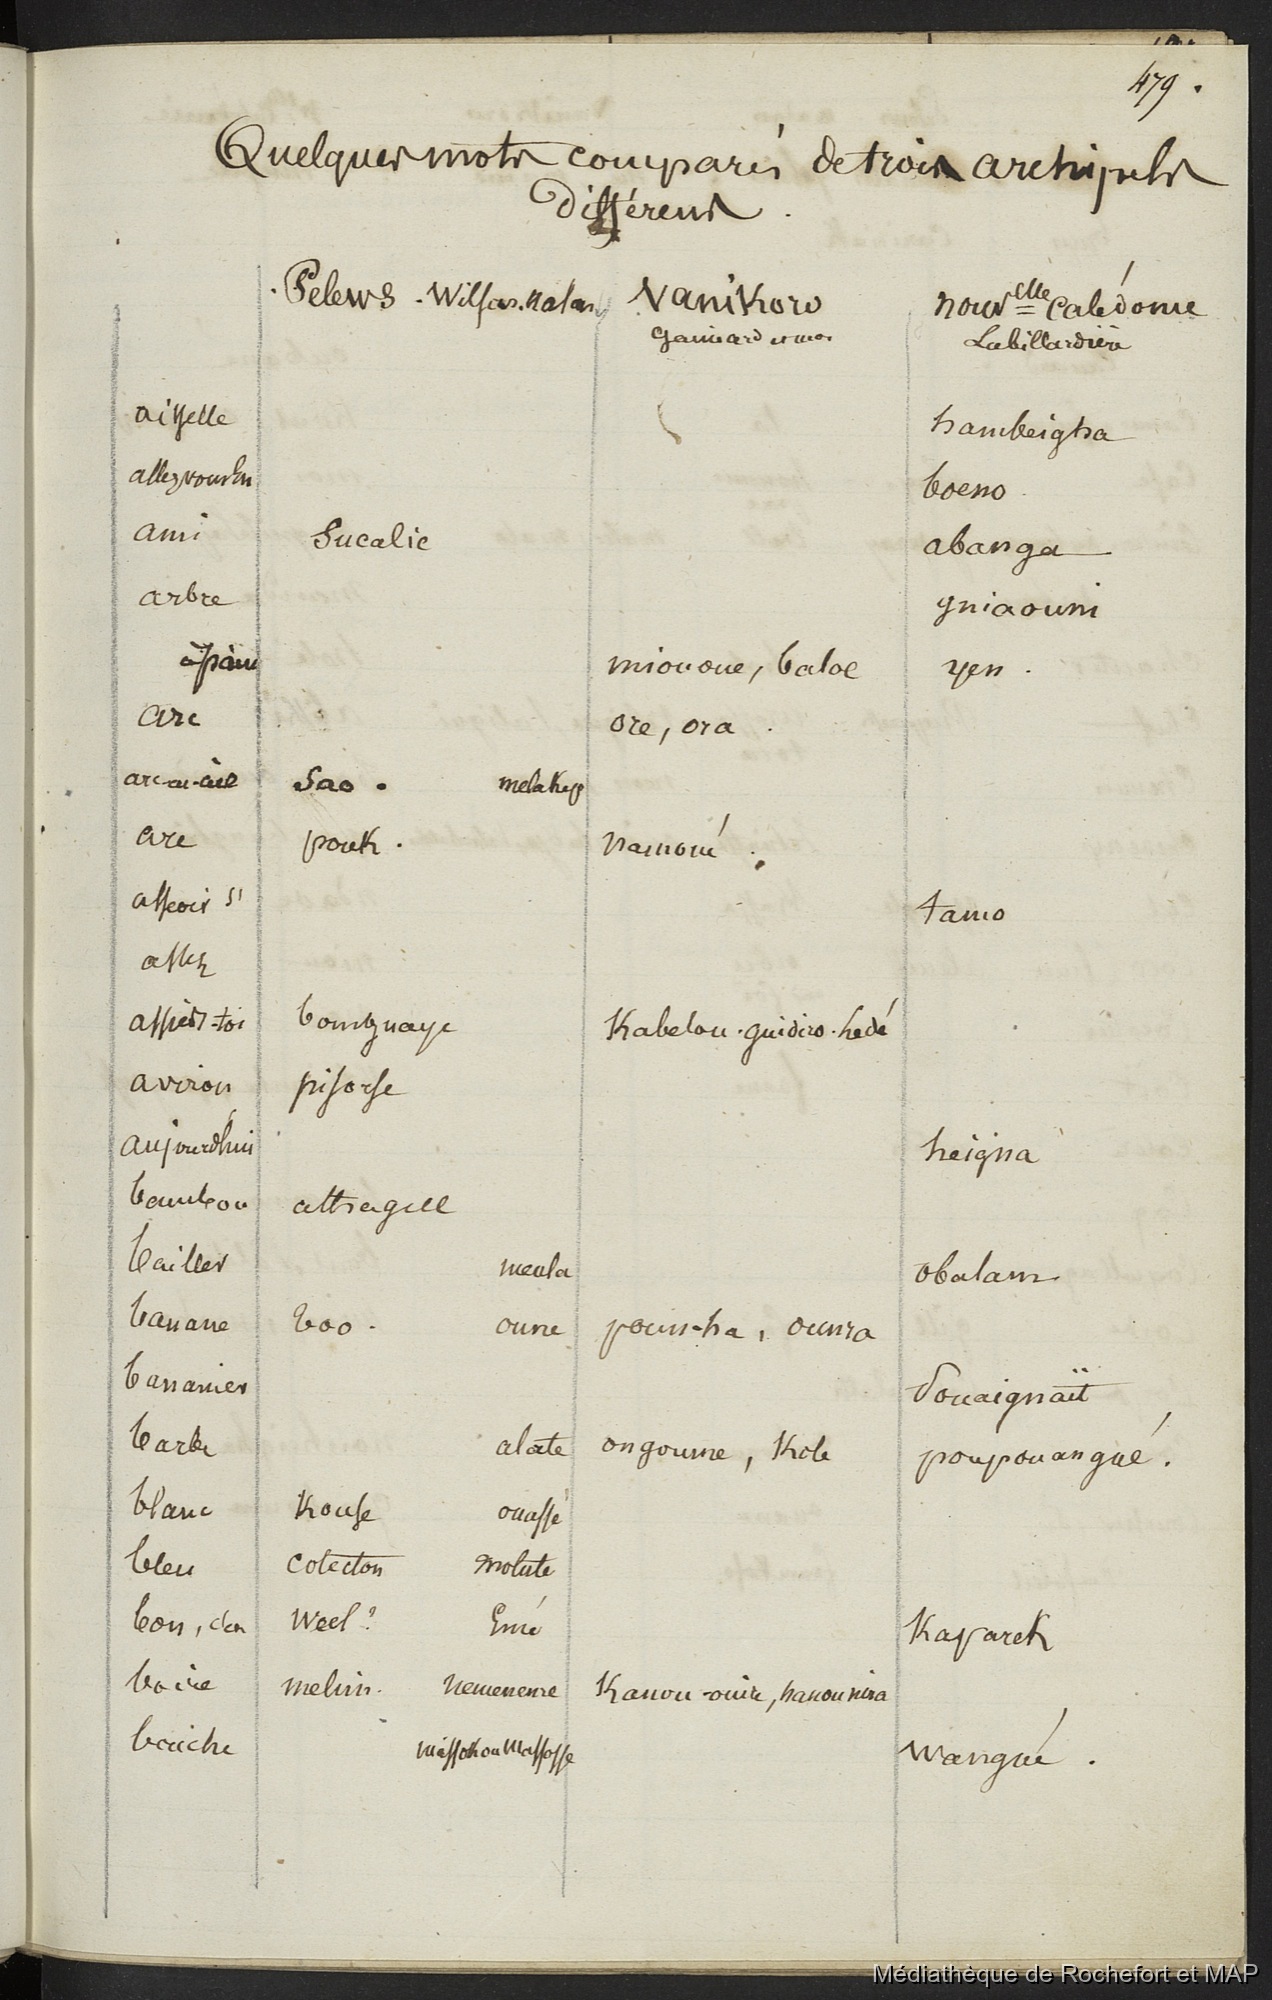 479.
Quelques mots comparés de trois archipels
différens.
Pelews - Wilson. Kalan Vanikoro nouv elle Calédonie
Gaimard et moi Labillardière
aisselle hambeigha
allez vous en boeno
ami Sucalic abanga
arbre gniaouni
à pain miououe, baloe yen.
arc ore, ora.
arc-en-ciel Sao. melakep
arc pouk. namoué.
asseoir s' tamo
assez
assieds-toi bomgnaye Kabelou. guidiro. hedé
aviron pisorse
aujourd'hui heigna
bambou attragell
bailler meula obalam
banane boo. oune poun-ha, ounra
bananier douaignaït
barbe alate ongoume, Kole poupouangué.
blanc Kouse ouassé
bleu cotecton molute
bon, Weel? Emé Kaparek
boire melim. nemeneme Kanou-ouire, hanounira
bouche missok ou Massosse wangué.
Médiathèque de Rochefort et MAP